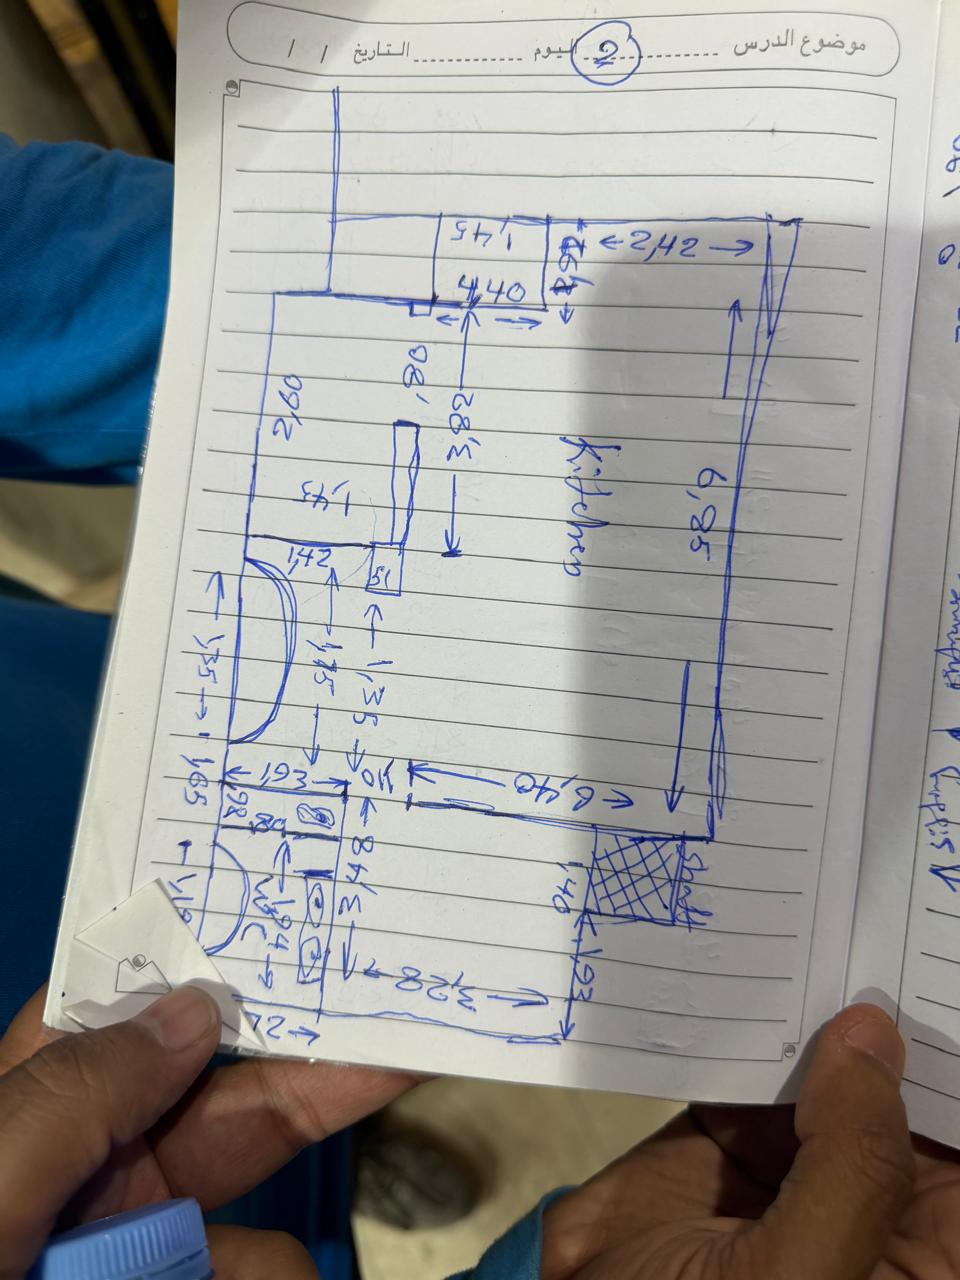 موضوع الدرس ........ اليوم ........ التاريخ / /
2
1,45
2,42
4,40
,80
3,82
2,60
Kitchen
6,85
1,45
1,42
15
1,35
1,35
1,75
1,93
10
6,40
Shaft
1,65
92
3,48
1,40
1,94
W.C
1,93
3,28